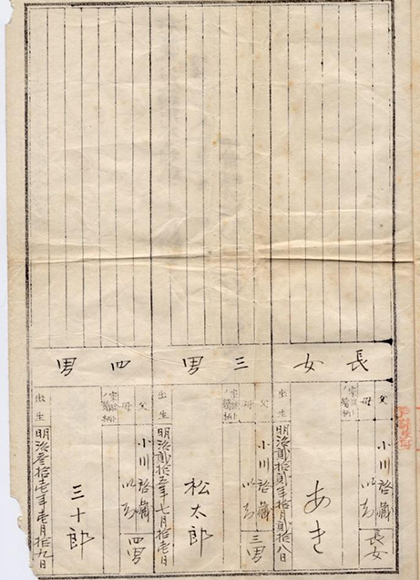 長女
父
小川啓蔵
長女
母
あき
出生
明治貳拾貳年拾月貳拾八日
三男
父
小川啓蔵
三男
母
松太郎
出生
明治貳拾五年七月拾壱日
四男
父
小川啓蔵
四男
母
三十郎
出生
明治参拾壱年壱月拾九日